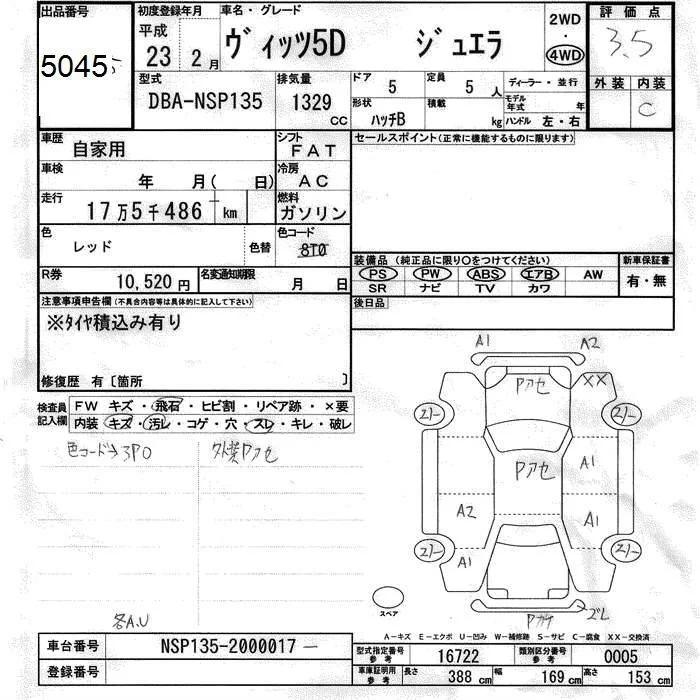 出品番号
5045
初度登録年月
平成
23 2月
車名・グレード
ヴィッツ5D ジュエラ
2WD
・
4WD
評価点
3.5
外装 内装
C
型式
DBA-NSP135
排気量
1329
CC
ドア
5
定員
5人
ディーラー・並行
形状
ハッチB
積載
kg
モデル年式 年
ハンドル 左・右
車歴
自家用
シフト
FAT
セールスポイント(正常に機能するものに限ります)
車検
年 月( 日)
冷房
AC
走行
17万5千486 km
燃料
ガソリン
色
レッド
色替
色コード
8T0
装備品 (純正品に限り○をつけてください)
新車保証書
PS PW ABS エアB AW
有・無
SR ナビ TV カワ
R券
10,520円
名変通知期限
月 日
後日品
注意事項申告欄(不具合内容等は具体的に記入して下さい)
※タイヤ積込み有り
修復歴 有〔箇所 〕
検査員
記入欄
FW キズ・飛石・ヒビ割・リペア跡・×要
内装・キズ・汚レ・コゲ・穴・スレ・キレ・破レ
色コード→3P0
外装Pアセ
各A.U
A1 A2
Pアセ
XX
A1
Pアセ
A2
A1
A1
スペア
A-キズ E-エクボ U-凹み W-補修跡 S-サビ C-腐食 XX-交換済
車台番号
NSP135-2000017
登録番号
型式指定番号
参考
16722
類別区分番号
参考
0005
車庫証明用
参考
長さ
388cm
幅
169cm
高さ
153cm